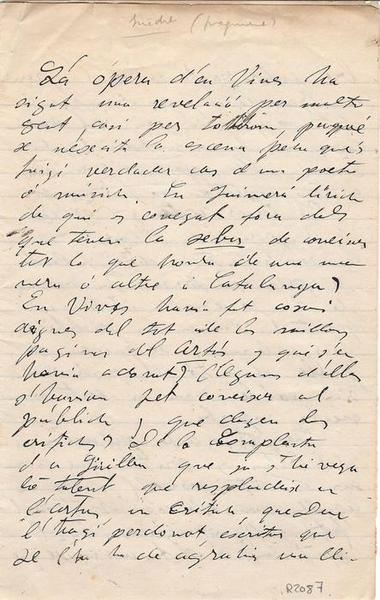 Inèdit (fragment)
La ópera d'en Vives ha
sigut una revelació per molta
gent casi per tothom, perqué
se necesita la escena pera que's
fassi verdader cas d'un poeta
ó músich. En Guimerá lírich
de qui es conegut fora dels
que tenen la de coneixer
tot lo que honra de una ma
nera ó altre á Catalunya?
En Vives havia fet cosas
dignes del tot de las millors
páginas del Artús y qui s'en
havia adonat? Alguns d'ells
s'havian fet coneixer al
públich y que dugen los
crítichs? De la Complanta
d'en Guillem que ja s'hi veya
lo talent que resplandeix en
l'Artus un crítich que Deu
l'hagi perdonat, escrigué que
se l'hi ha de agrahir una lli-
R2087.